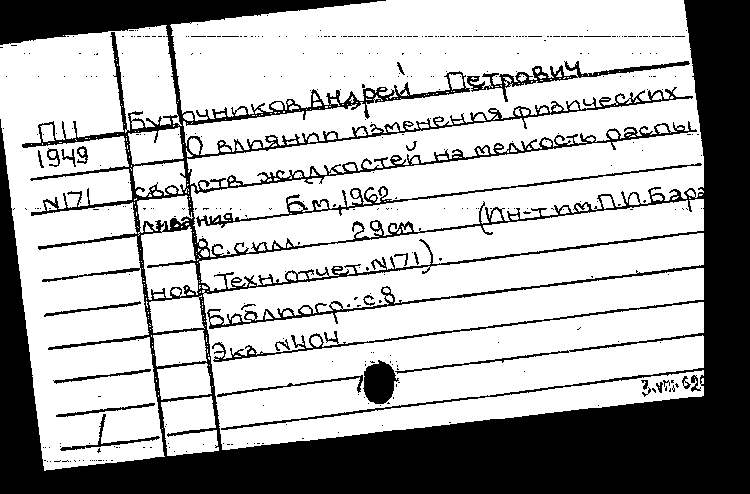 Буточников, Андрей Петрович
П11
1949
О влиянии изменения физических
N171
свойств жидкостей на мелкость распы
ливания. Б.м., 1962.
8с.с илл. 29см. (Ин-т им.П.И.Бара
нова.Техн.отчет.N171).
Библиогр.:с.8.
Экз. N404